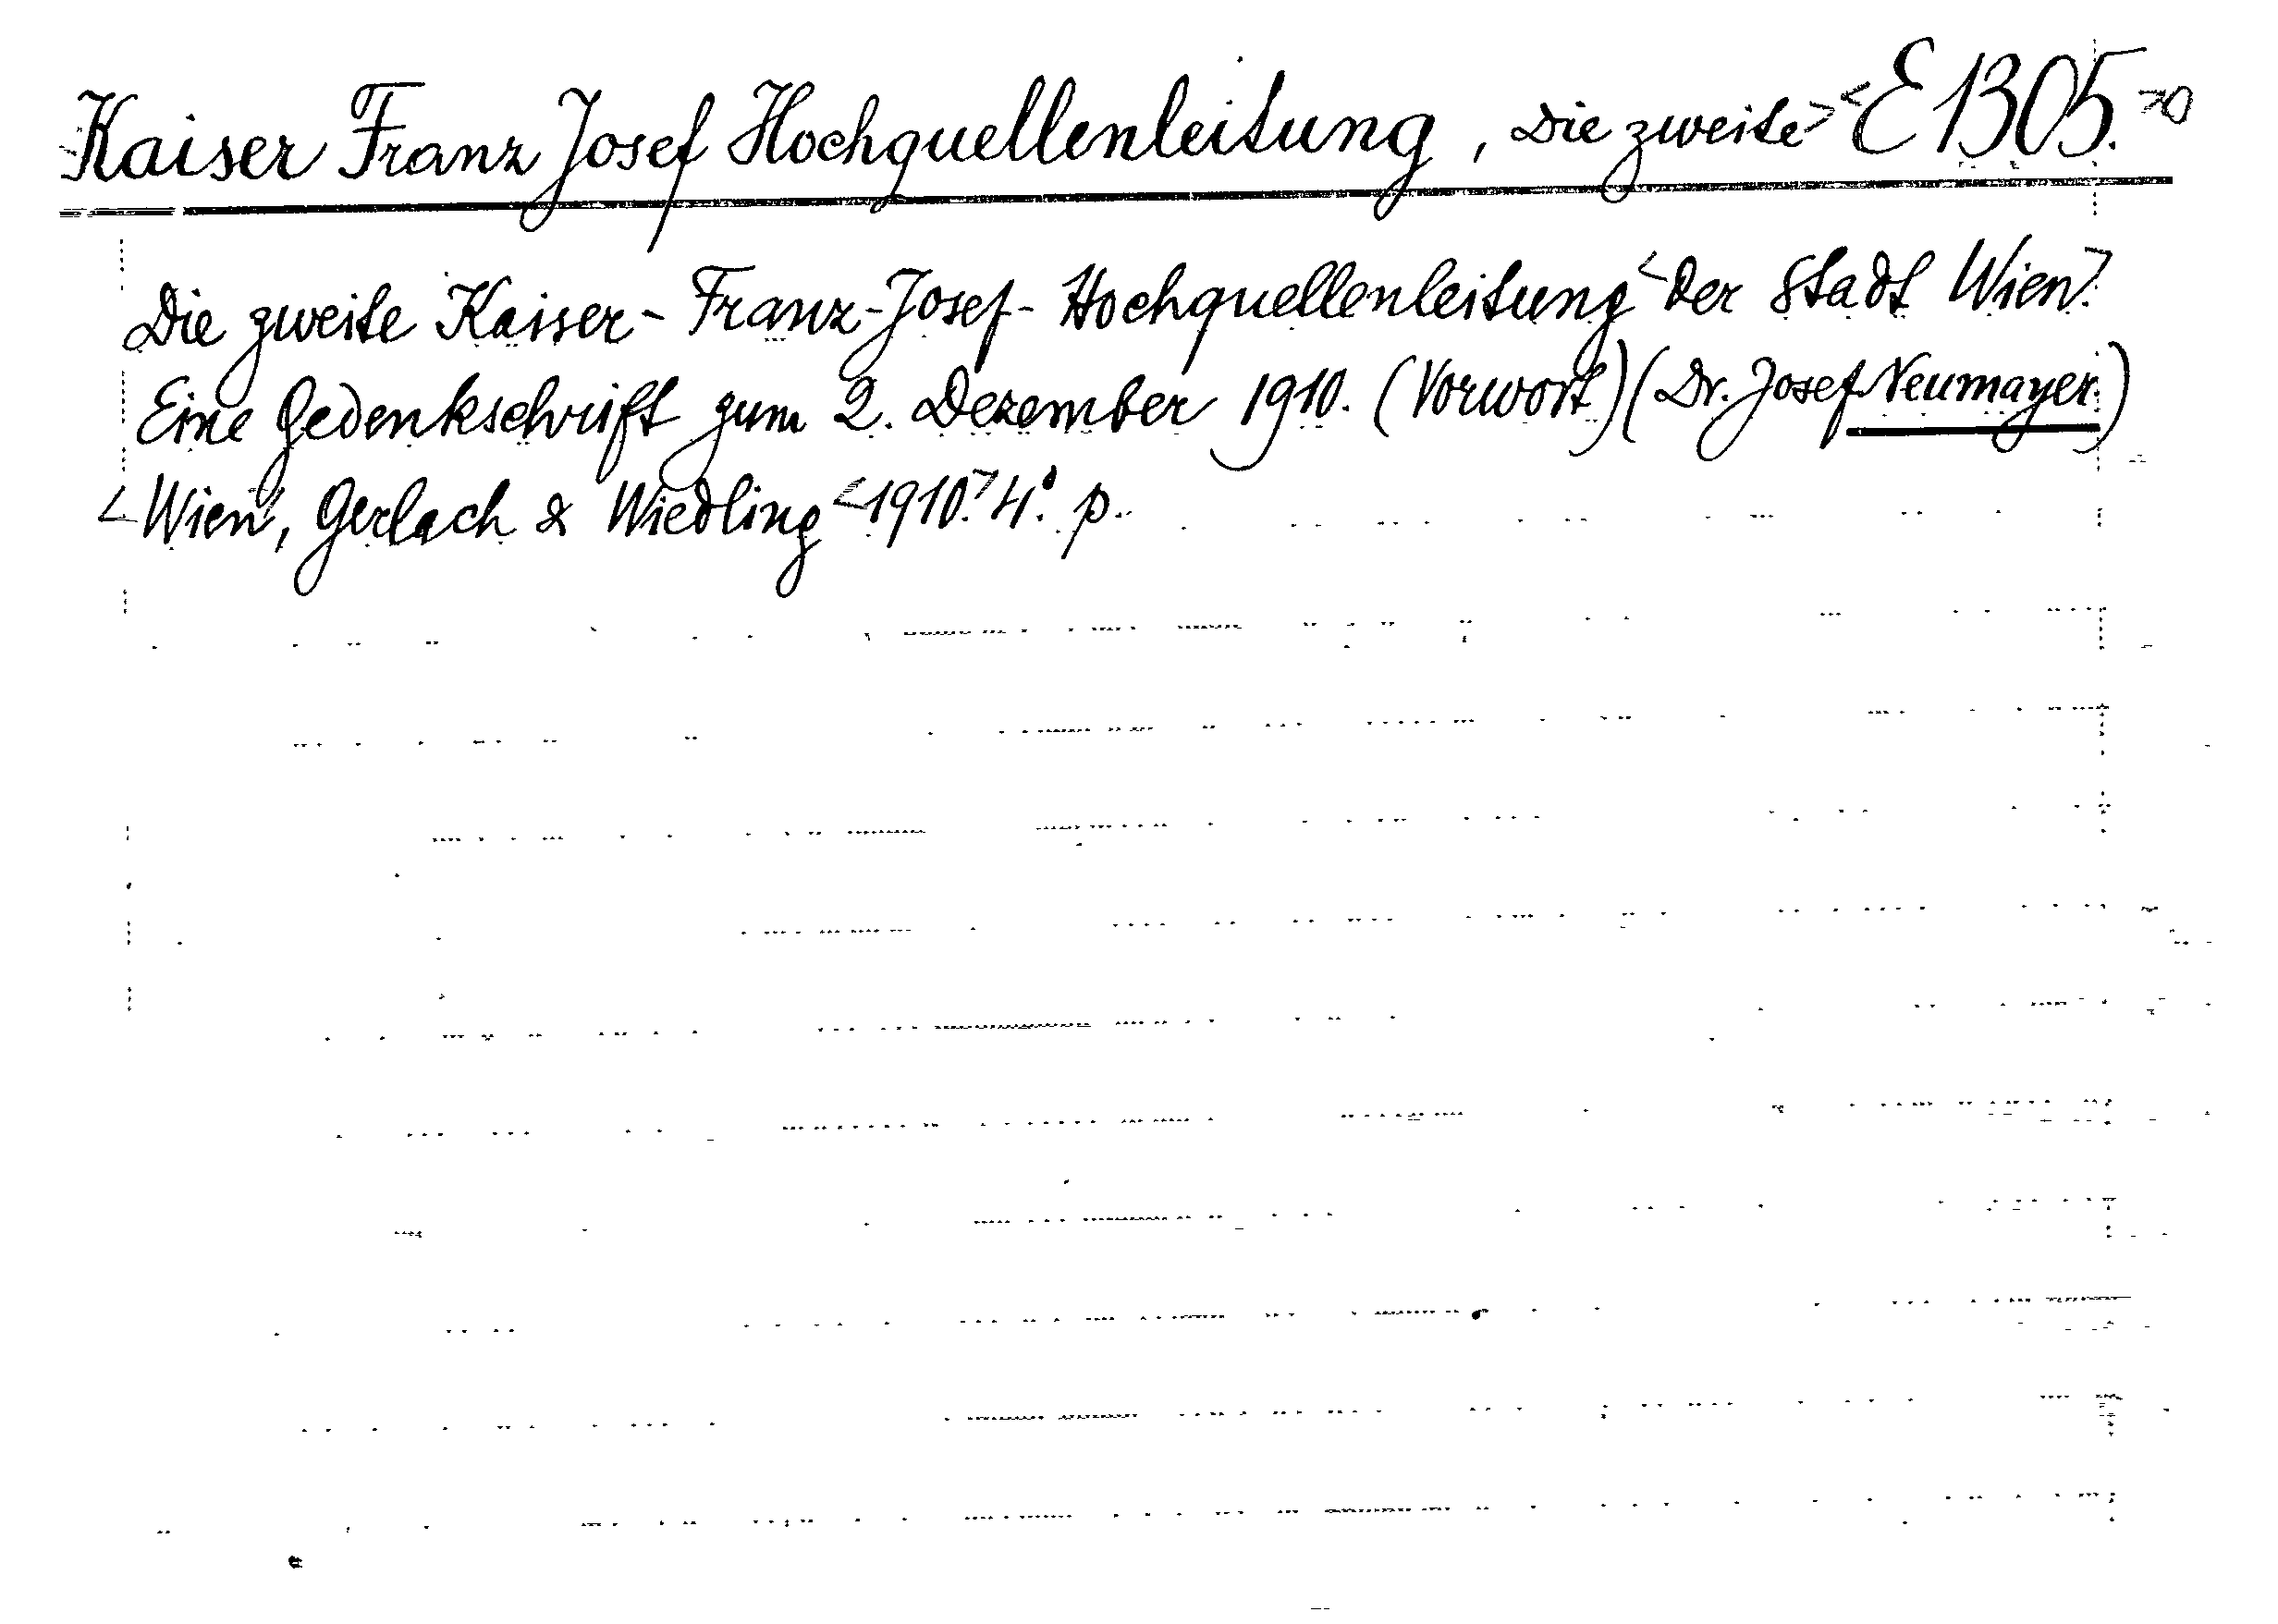 <Kaiser Franz Josef Hochquellenleitung, Die zweite> <E 1305.>
Die zweite Kaiser-Franz-Josef-Hochquellenleitung <der Stadt Wien.>
Eine Gedenkschrift zum 2. Dezember 1910. (Vorwort) (Dr. Josef Neumayer.)
<Wien>, Gerlach & Wiedling <1910.> 4°. p.